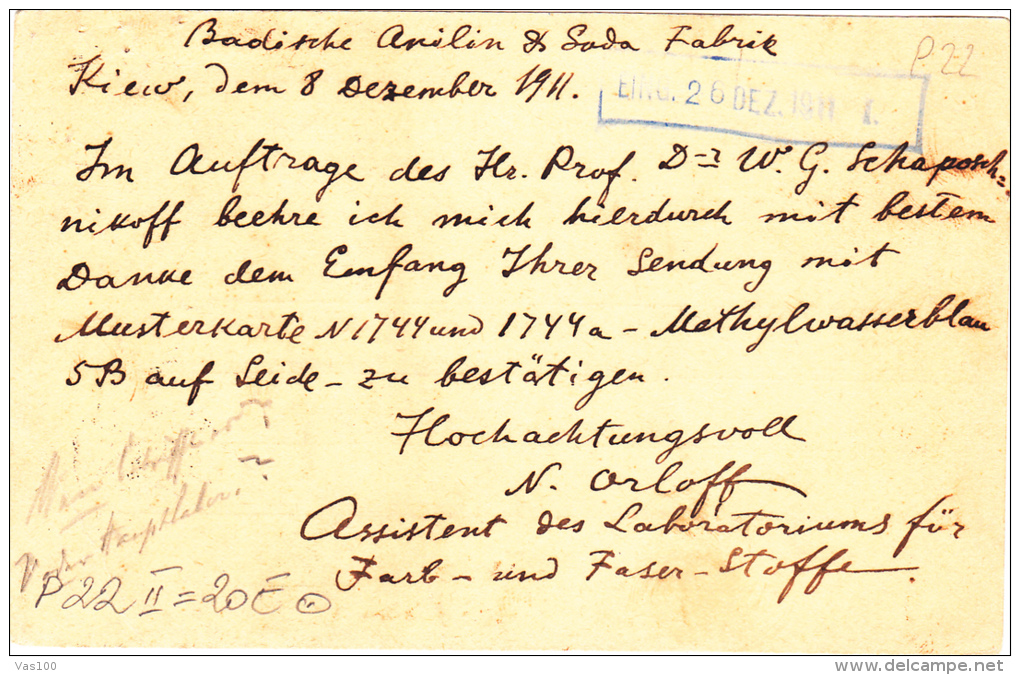 Badische Anilin & Soda Fabrik
P 22
Kiew, dem 8 Dezember 1911.
EING. 26 DEZ. 1911 1.
Im Auftrage des Hr. Prof. D=r W. G. Schaposch=
nikoff beehre ich mich hierdurch mit bestem
Danke dem Emfang Ihrer Sendung mit
Musterkarte N 1744 und 1744a – Methylwasserblau
5B auf Seide – zu bestätigen.
Hochachtungsvoll
N. Orloff
Assistent des Laboratoriums für
Farb – und Faser – Stoffe.
P 22 II = 20€
Vas100
delcampe.net